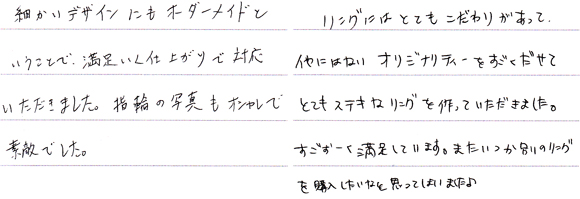 細かいデザインにもオーダーメイドと
いうことで、満足いく仕上がりで対応
いただきました。指輪の写真もオシャレで
素敵でした。
リングにはとてもこだわりがあって、
他にはない オリジナリティーをすごくだせて
とてもステキなリングを作っていただきました。
すごずーく満足しています。またいつか合いのリング
を購入したいなと思ってしまいました♪